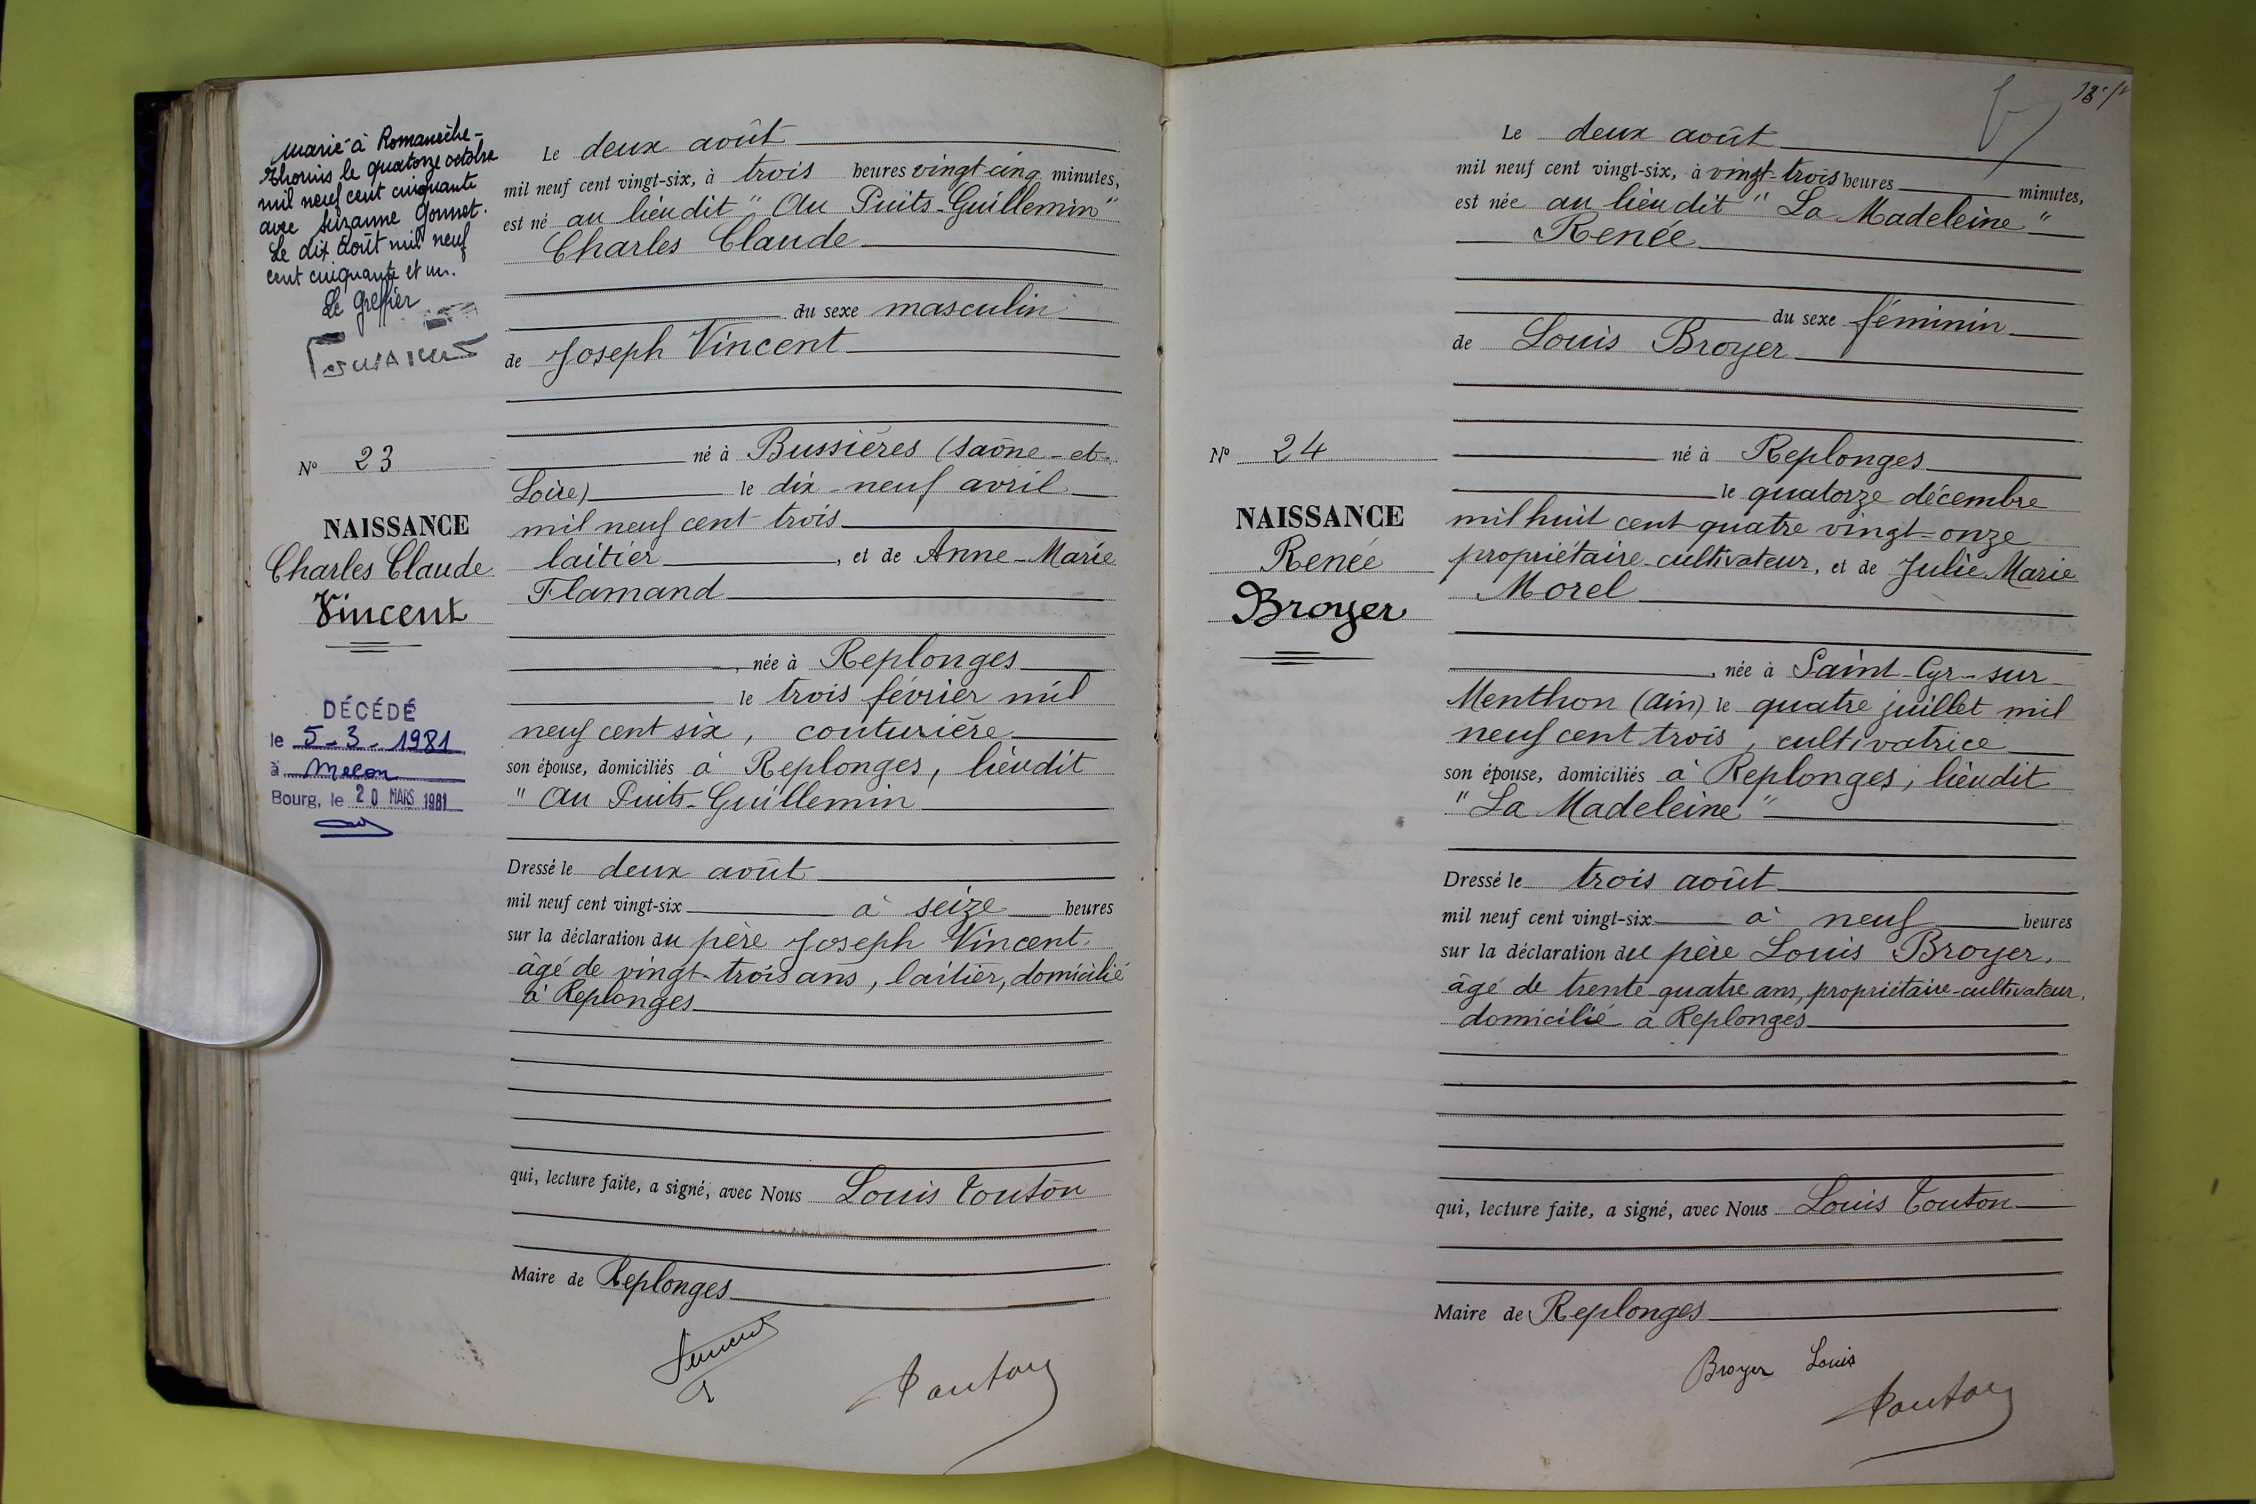 marié à Romanèche-
Thorins le quatorze octobre
mil neuf cent cinquante
avec Suzanne Gonnet.
Le dix août mil neuf
cent cinquante et un.
Le Greffier
N° 23
NAISSANCE
Charles Claude
Vincent
DÉCÉDÉ
le 5-3-1981
à Macon
Bourg, le 20 MARS 1981
Le deux août
mil neuf cent vingt-six, à trois heures vingt cinq minutes,
est né au lieudit " Au Puits-Guillemin "
Charles Claude
du sexe masculin
de Joseph Vincent
né à Bussières (Saône-et-
Loire) le dix-neuf avril
mil neuf cent trois
laitier, et de Anne-Marie
Flamand
, née à Replonges
le trois février mil
neuf cent six, couturière
son épouse, domiciliés à Replonges, lieudit
" Au Puits-Guillemin
Dressé le deux août
mil neuf cent vingt-six à seize heures
sur la déclaration du père Joseph Vincent,
âgé de vingt-trois ans, laitier, domicilié
à Replonges
qui, lecture faite, a signé, avec Nous Louis Touton
Maire de Replonges
Vincent
Touton
Le deux août
mil neuf cent vingt-six, à vingt-trois heures minutes,
est née au lieu dit " La Madeleine "
Renée
du sexe féminin
de Louis Broyer
N° 24
NAISSANCE
Renée
Broyer
né à Replonges
le quatorze décembre
mil huit cent quatre vingt-onze
propriétaire-cultivateur, et de Julie Marie
Morel
, née à Saint-Cyr-sur-
Menthon (Ain) le quatre juillet mil
neuf cent trois, cultivatrice
son épouse, domiciliés à Replonges, lieudit
" La Madeleine "
Dressé le trois août
mil neuf cent vingt-six à neuf heures
sur la déclaration du père Louis Broyer,
âgé de trente-quatre ans, propriétaire-cultivateur,
domicilié à Replonges
qui, lecture faite, a signé, avec Nous Louis Touton
Maire de Replonges
Broyer Louis
Touton